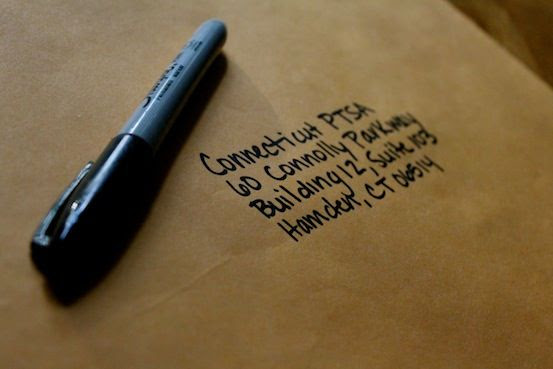 Sharpie
Connecticut PTSA
60 Connolly Parkway
Building 12, Suite 103
Hamden, CT 06514